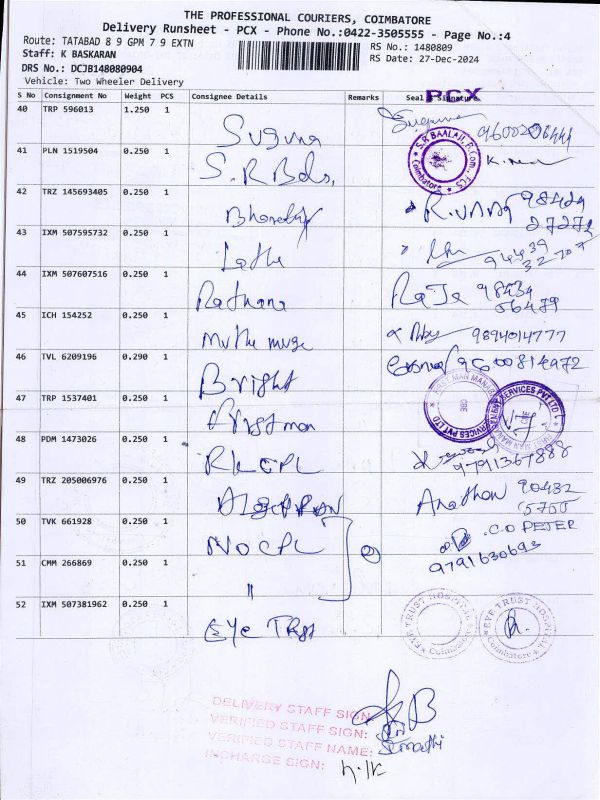 THE PROFESSIONAL COURIERS, COIMBATORE
Delivery Runsheet - PCX - Phone No.:0422-3505555 - Page No.:4
Route: TATABAD 8 9 GPM 7 9 EXTN
RS No.: 1480809
Staff: K BASKARAN
RS Date: 27-Dec-2024
DRS No.: DCJB148080904
Vehicle: Two Wheeler Delivery
PCX
S No Consignment No Weight PCS Consignee Details Remarks Seal & Signature
40 TRP 596013 1.250 1 Suguna Suguna
41 PLN 1519504 0.250 1 S.R Bds,
S.R BAALAJI, B.Com., FCS
Coimbatore
42 TRZ 145693405 0.250 1 98424
27273
43 IXM 507595732 0.250 1 Latha 94439
32707
44 IXM 507607516 0.250 1 Rathana RaJa 98434
56479
45 ICH 154252 0.250 1 9894014777
46 TVL 6209196 0.290 1 Bright 9600814972
47 TRP 1537401 0.250 1 First man
FIRST MAN MANAGEMENT SERVICES PVT LTD
CBE
48 PDM 1473026 0.250 1 RKCPL 9791367888
49 TRZ 205006976 0.250 1 90432
5700
50 TVK 661928 0.250 1 NOCPL C.O PETER
9791630693
51 CMM 266869 0.250 1 "
52 IXM 507381962 0.250 1 Eye Trust
EYE TRUST HOSPITAL
Coimbatore
EYE TRUST HOSPITAL
Coimbatore
DELIVERY STAFF SIGN:
VERIFIED STAFF SIGN:
VERIFIED STAFF NAME:
INCHARGE SIGN: